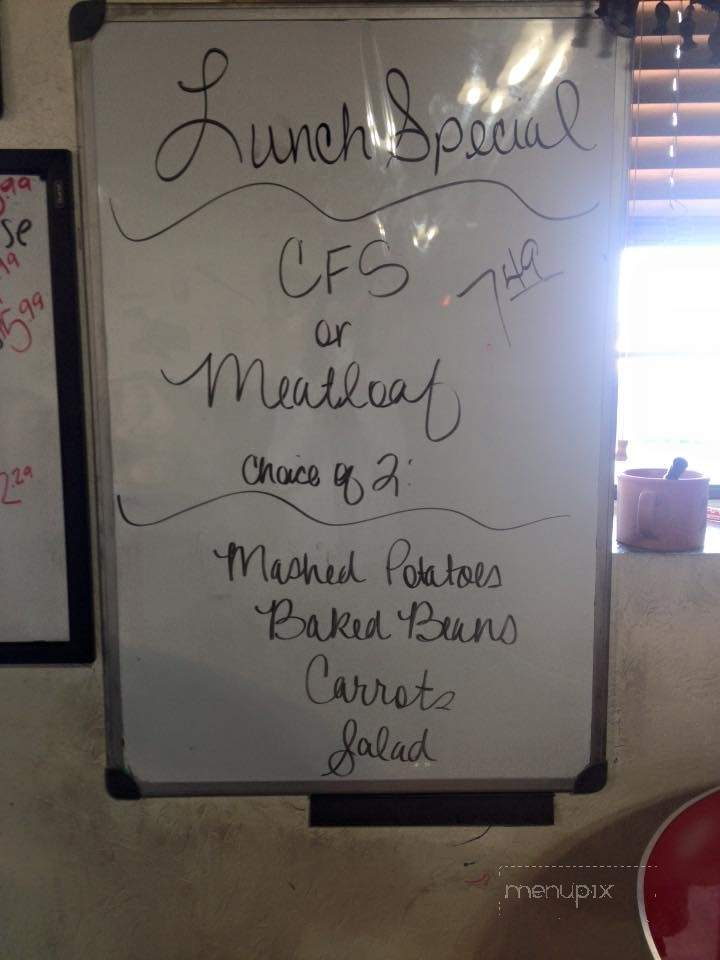 Lunch Special
CFS
7.49
or
Meatloaf
Choice of 2:
Mashed Potatoes
Baked Beans
Carrots
Salad
se
5.99
2.29
menupix